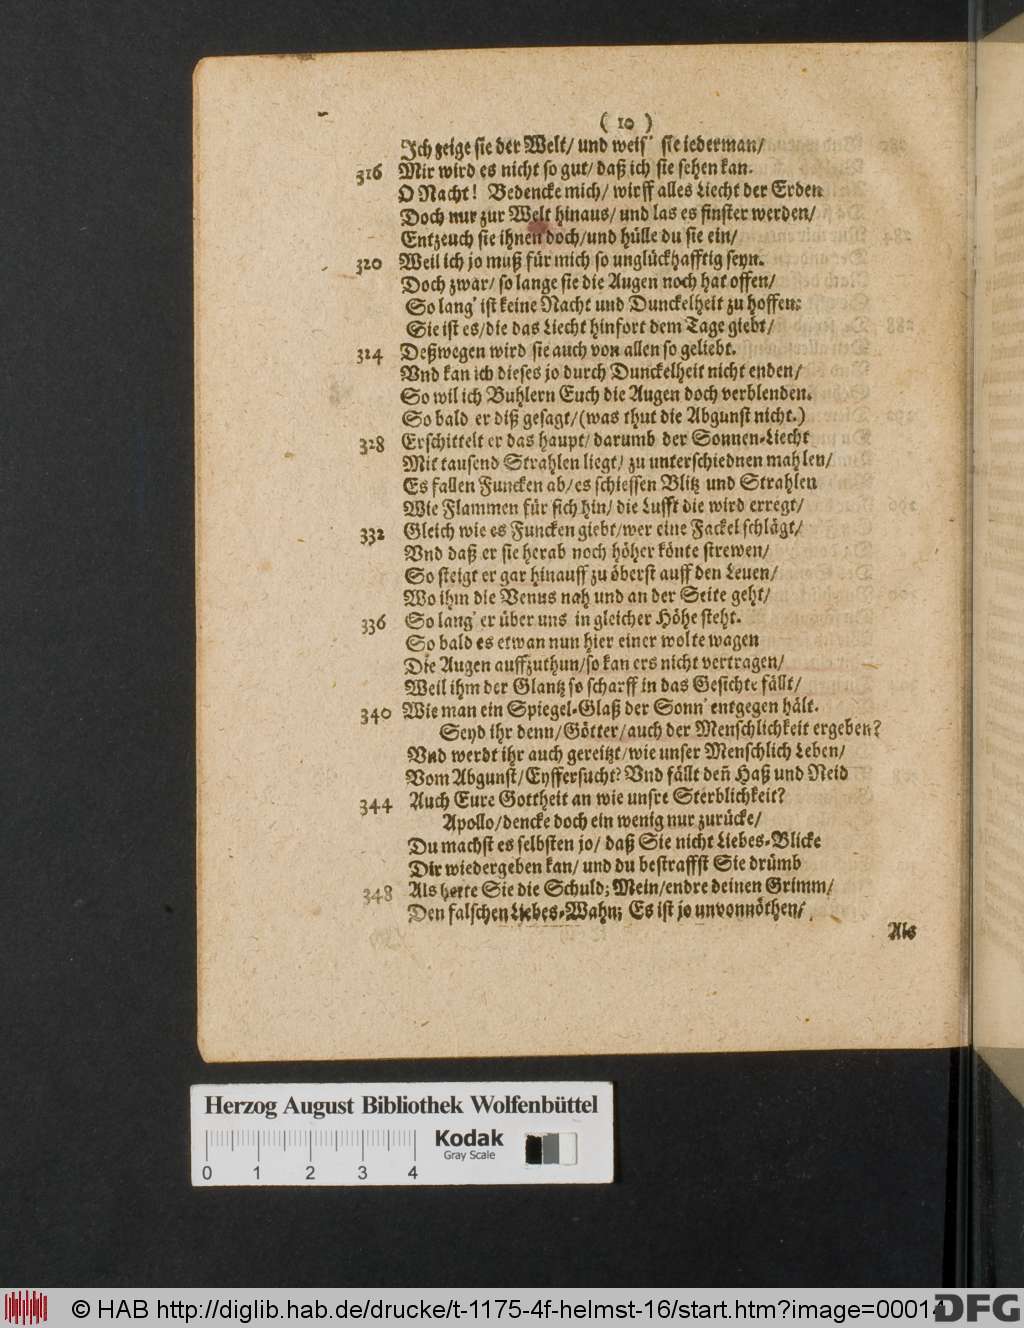 ( 10 )
Ich zeige sie der Welt/ und weis' sie iederman/
316 Mir wird es nicht so gut/ daß ich sie sehen kan.
O Nacht! Bedencke mich/ wirff alles Liecht der Erden
Doch nur zur Welt hinaus/ und las es finster werden/
Entzeuch sie ihnen doch/und hülle du sie ein/
320 Weil ich jo muß für mich so unglückhafftig seyn.
Doch zwar/ so lange sie die Augen noch hat offen/
So lang' ist keine Nacht und Dunckelheit zu hoffen:
Sie ist es/die das Liecht hinfort dem Tage giebt/
324 Deßwegen wird sie auch von allen so geliebt.
Vnd kan ich dieses jo durch Dunckelheit nicht enden/
So wil ich Buhlern Euch die Augen doch verblenden.
So bald er diß gesagt/(was thut die Abgunst nicht.)
328 Erschittelt er das haupt/ darumb der Sonnen-Liecht
Mit tausend Strahlen liegt/ zu unterschiednen mahlen/
Es fallen Funcken ab/es schiessen Blitz und Strahlen
Wie Flammen für sich hin/ die Lufft die wird erregt/
332 Gleich wie es Funcken giebt/wer eine Fackel schlägt/
Vnd daß er sie herab noch höher könte strewen/
So steigt er gar hinauff zu öberst auff den Leuen/
Wo ihm die Venus nah und an der Seite geht/
336 So lang' er über uns in gleicher Höhe steht.
So bald es etwan nun hier einer wolte wagen
Die Augen auffzuthun/so kan ers nicht vertragen/
Weil ihm der Glantz so scharff in das Gesichte fällt/
340 Wie man ein Spiegel-Glaß der Sonn' entgegen hält.
Seyd ihr denn/Götter/auch der Menschlichkeit ergeben?
Vnd werdt ihr auch gereitzt/wie unser Menschlich Leben/
Vom Abgunst/Eyffersucht? Vnd fällt deñ Haß und Neid
344 Auch Eure Gottheit an wie unsre Sterblichkeit?
Apollo/dencke doch ein wenig nur zurücke/
Du machst es selbsten jo/ daß Sie nicht Liebes-Blicke
Dir wiedergeben kan/ und du bestraffst Sie drümb
348 Als hette Sie die Schuld; Mein/endre deinen Grimm/
Den falschen Liebes-Wahn; Es ist jo unvonnöthen/
Als
Herzog August Bibliothek Wolfenbüttel
Kodak
Gray Scale
0 1 2 3 4
© HAB http://diglib.hab.de/drucke/t-1175-4f-helmst-16/start.htm?image=00014
DFG